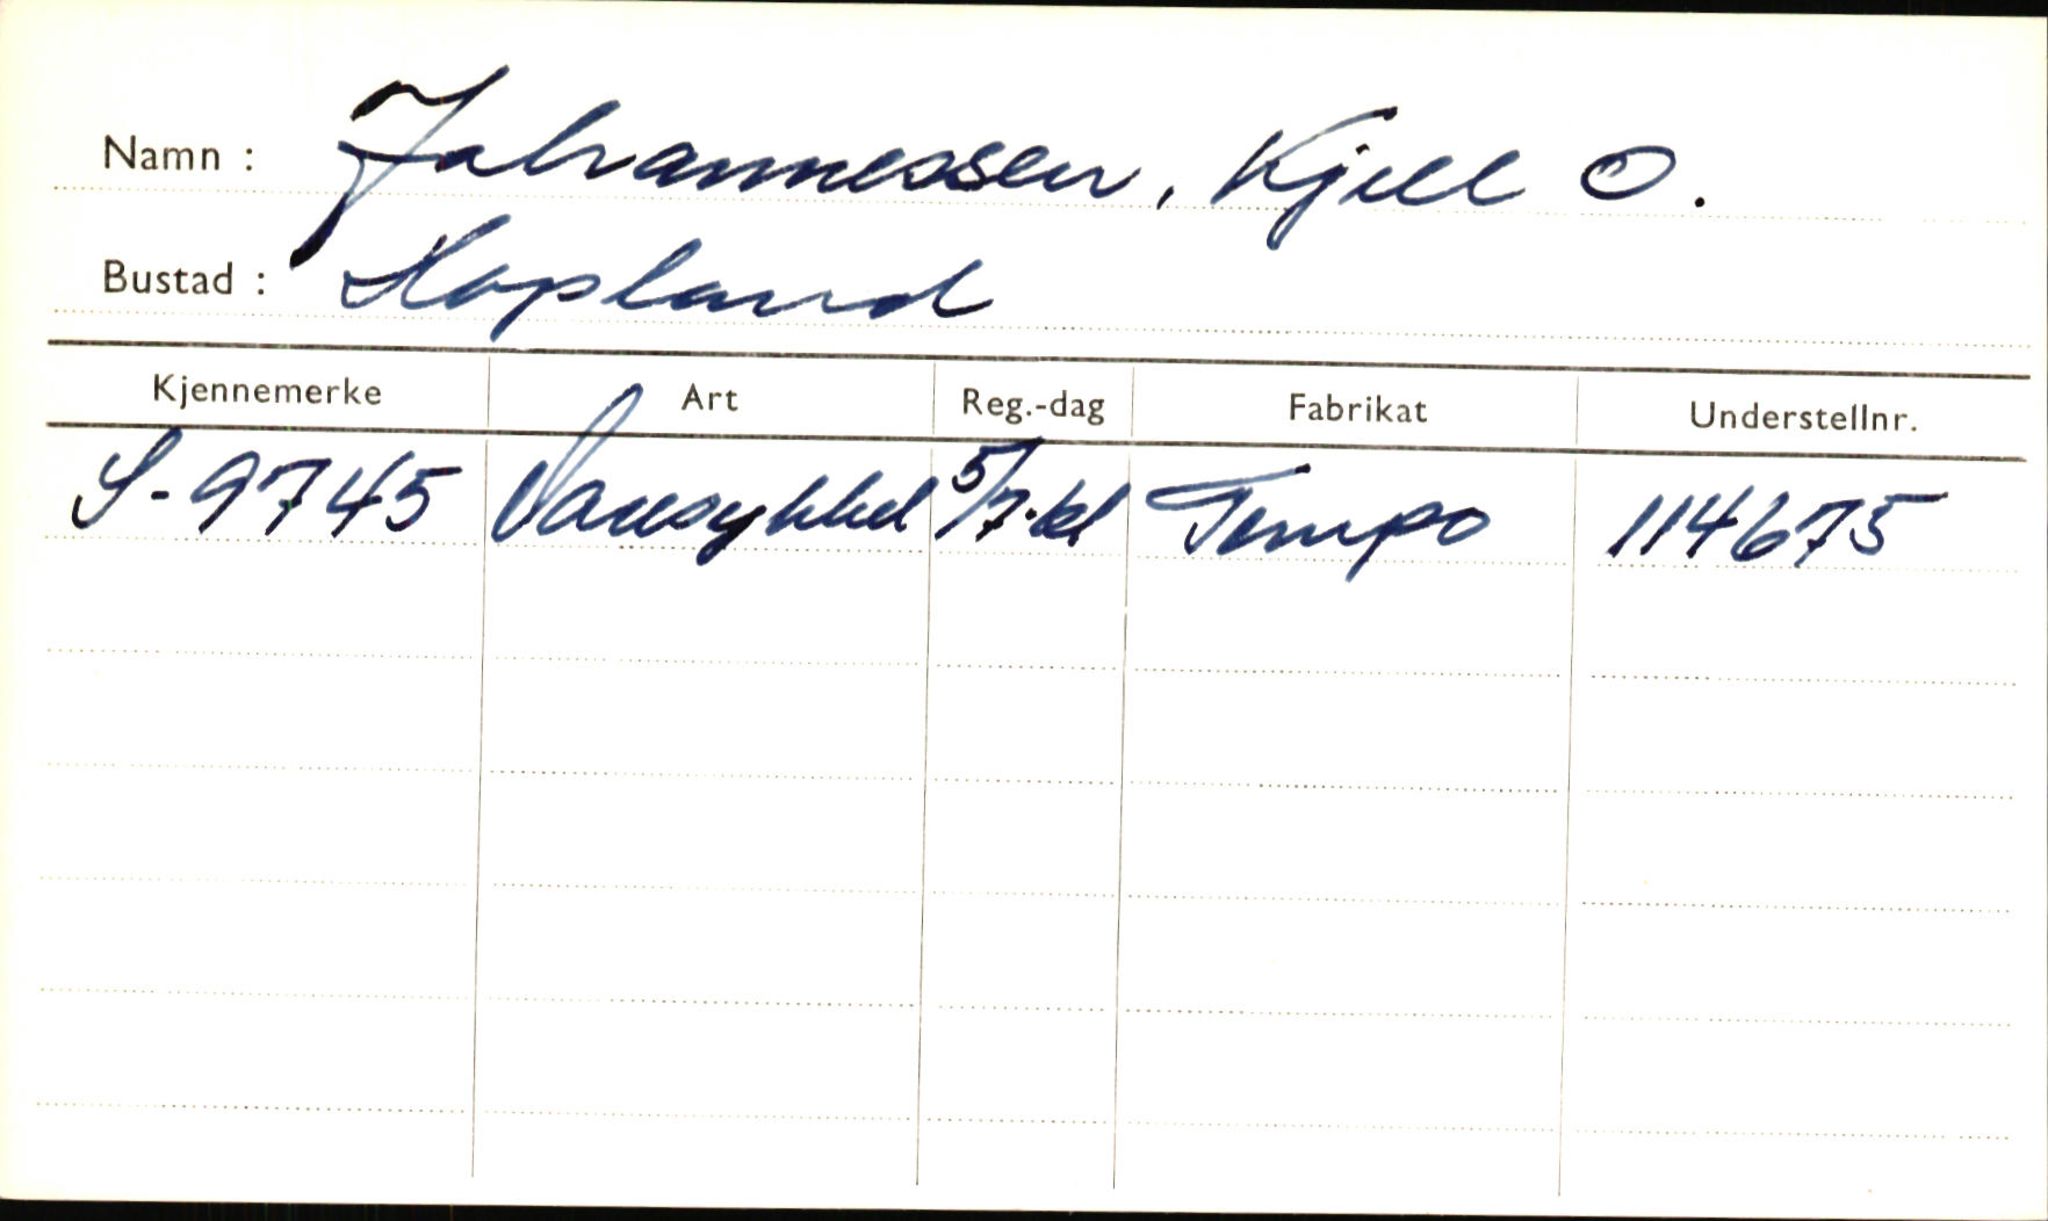 Namn : Johannessen, Kjell O.
Bustad : Hopland
Kjennemerke Art Reg.-dag Fabrikat Understellnr.
S-9745 Varesykkel 5/7.61 Tempo 114675